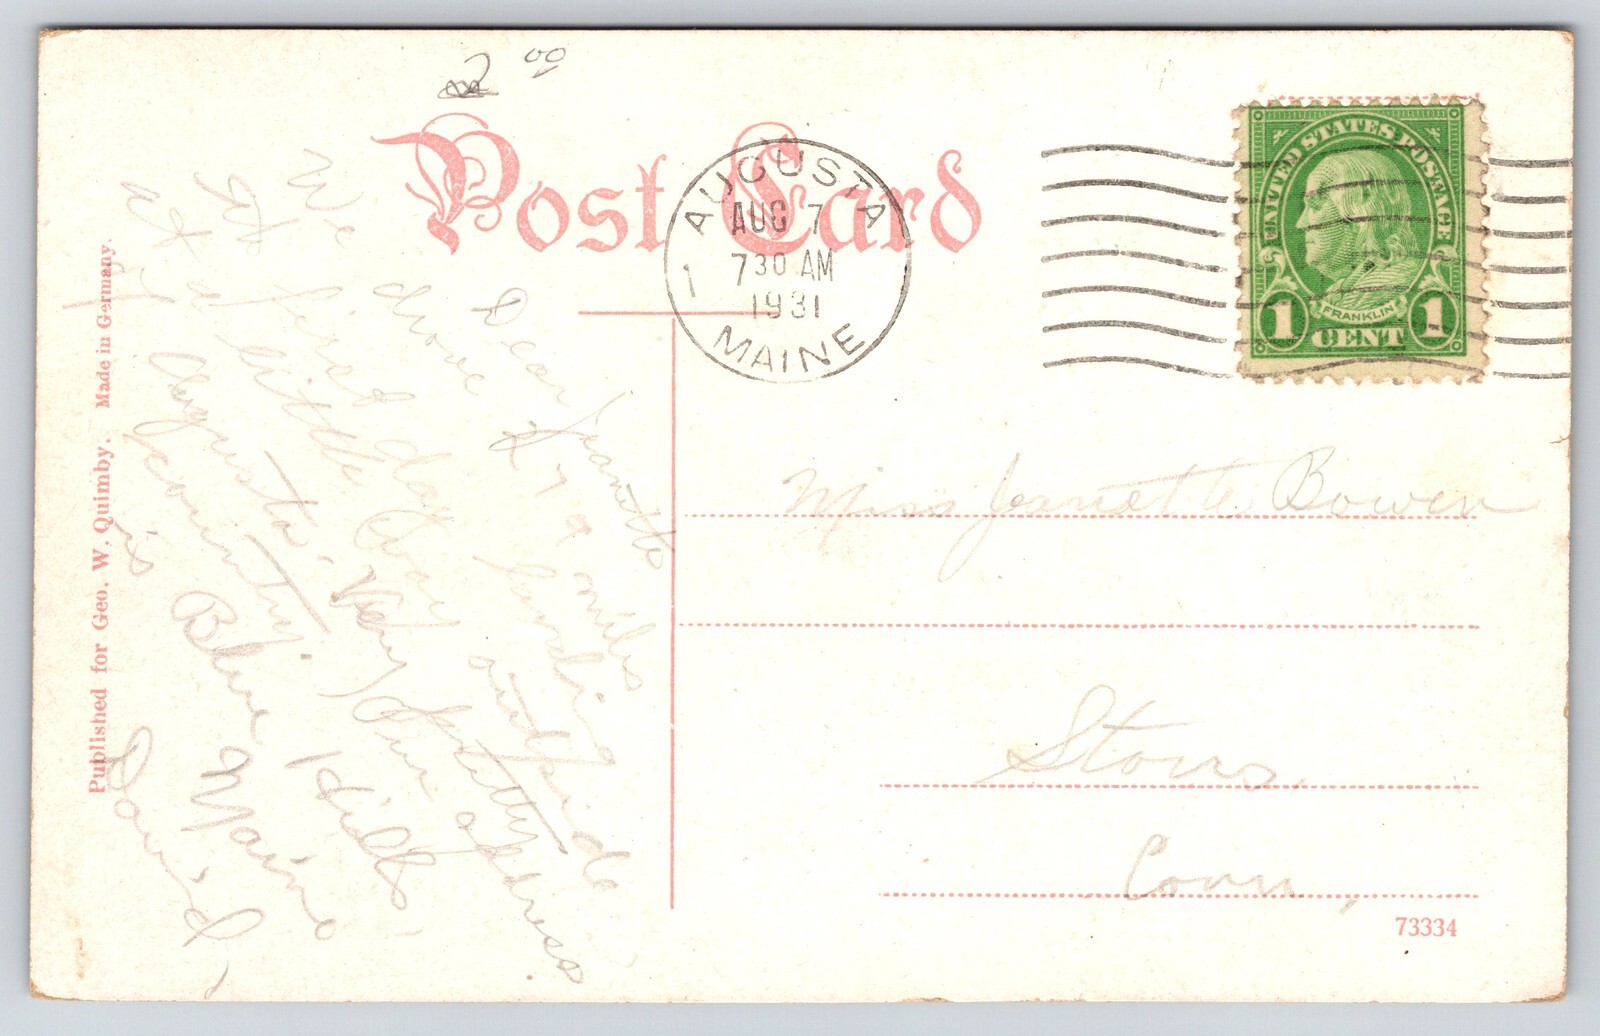 2 00
Post Card
AUGUSTA
AUG 7
7 30 AM
1931
MAINE
1
UNITED STATES POSTAGE
FRANKLIN
1 CENT 1
Dear Jeanette
We drove 279 miles
the first day landing
at a little way outside
of Augusta. Very pretty
country. Our address
is Blue Hills
Maine
David
Miss Jeanette Bowen
Storrs
Conn,
73334
Published for Geo. W. Quimby. Made in Germany.